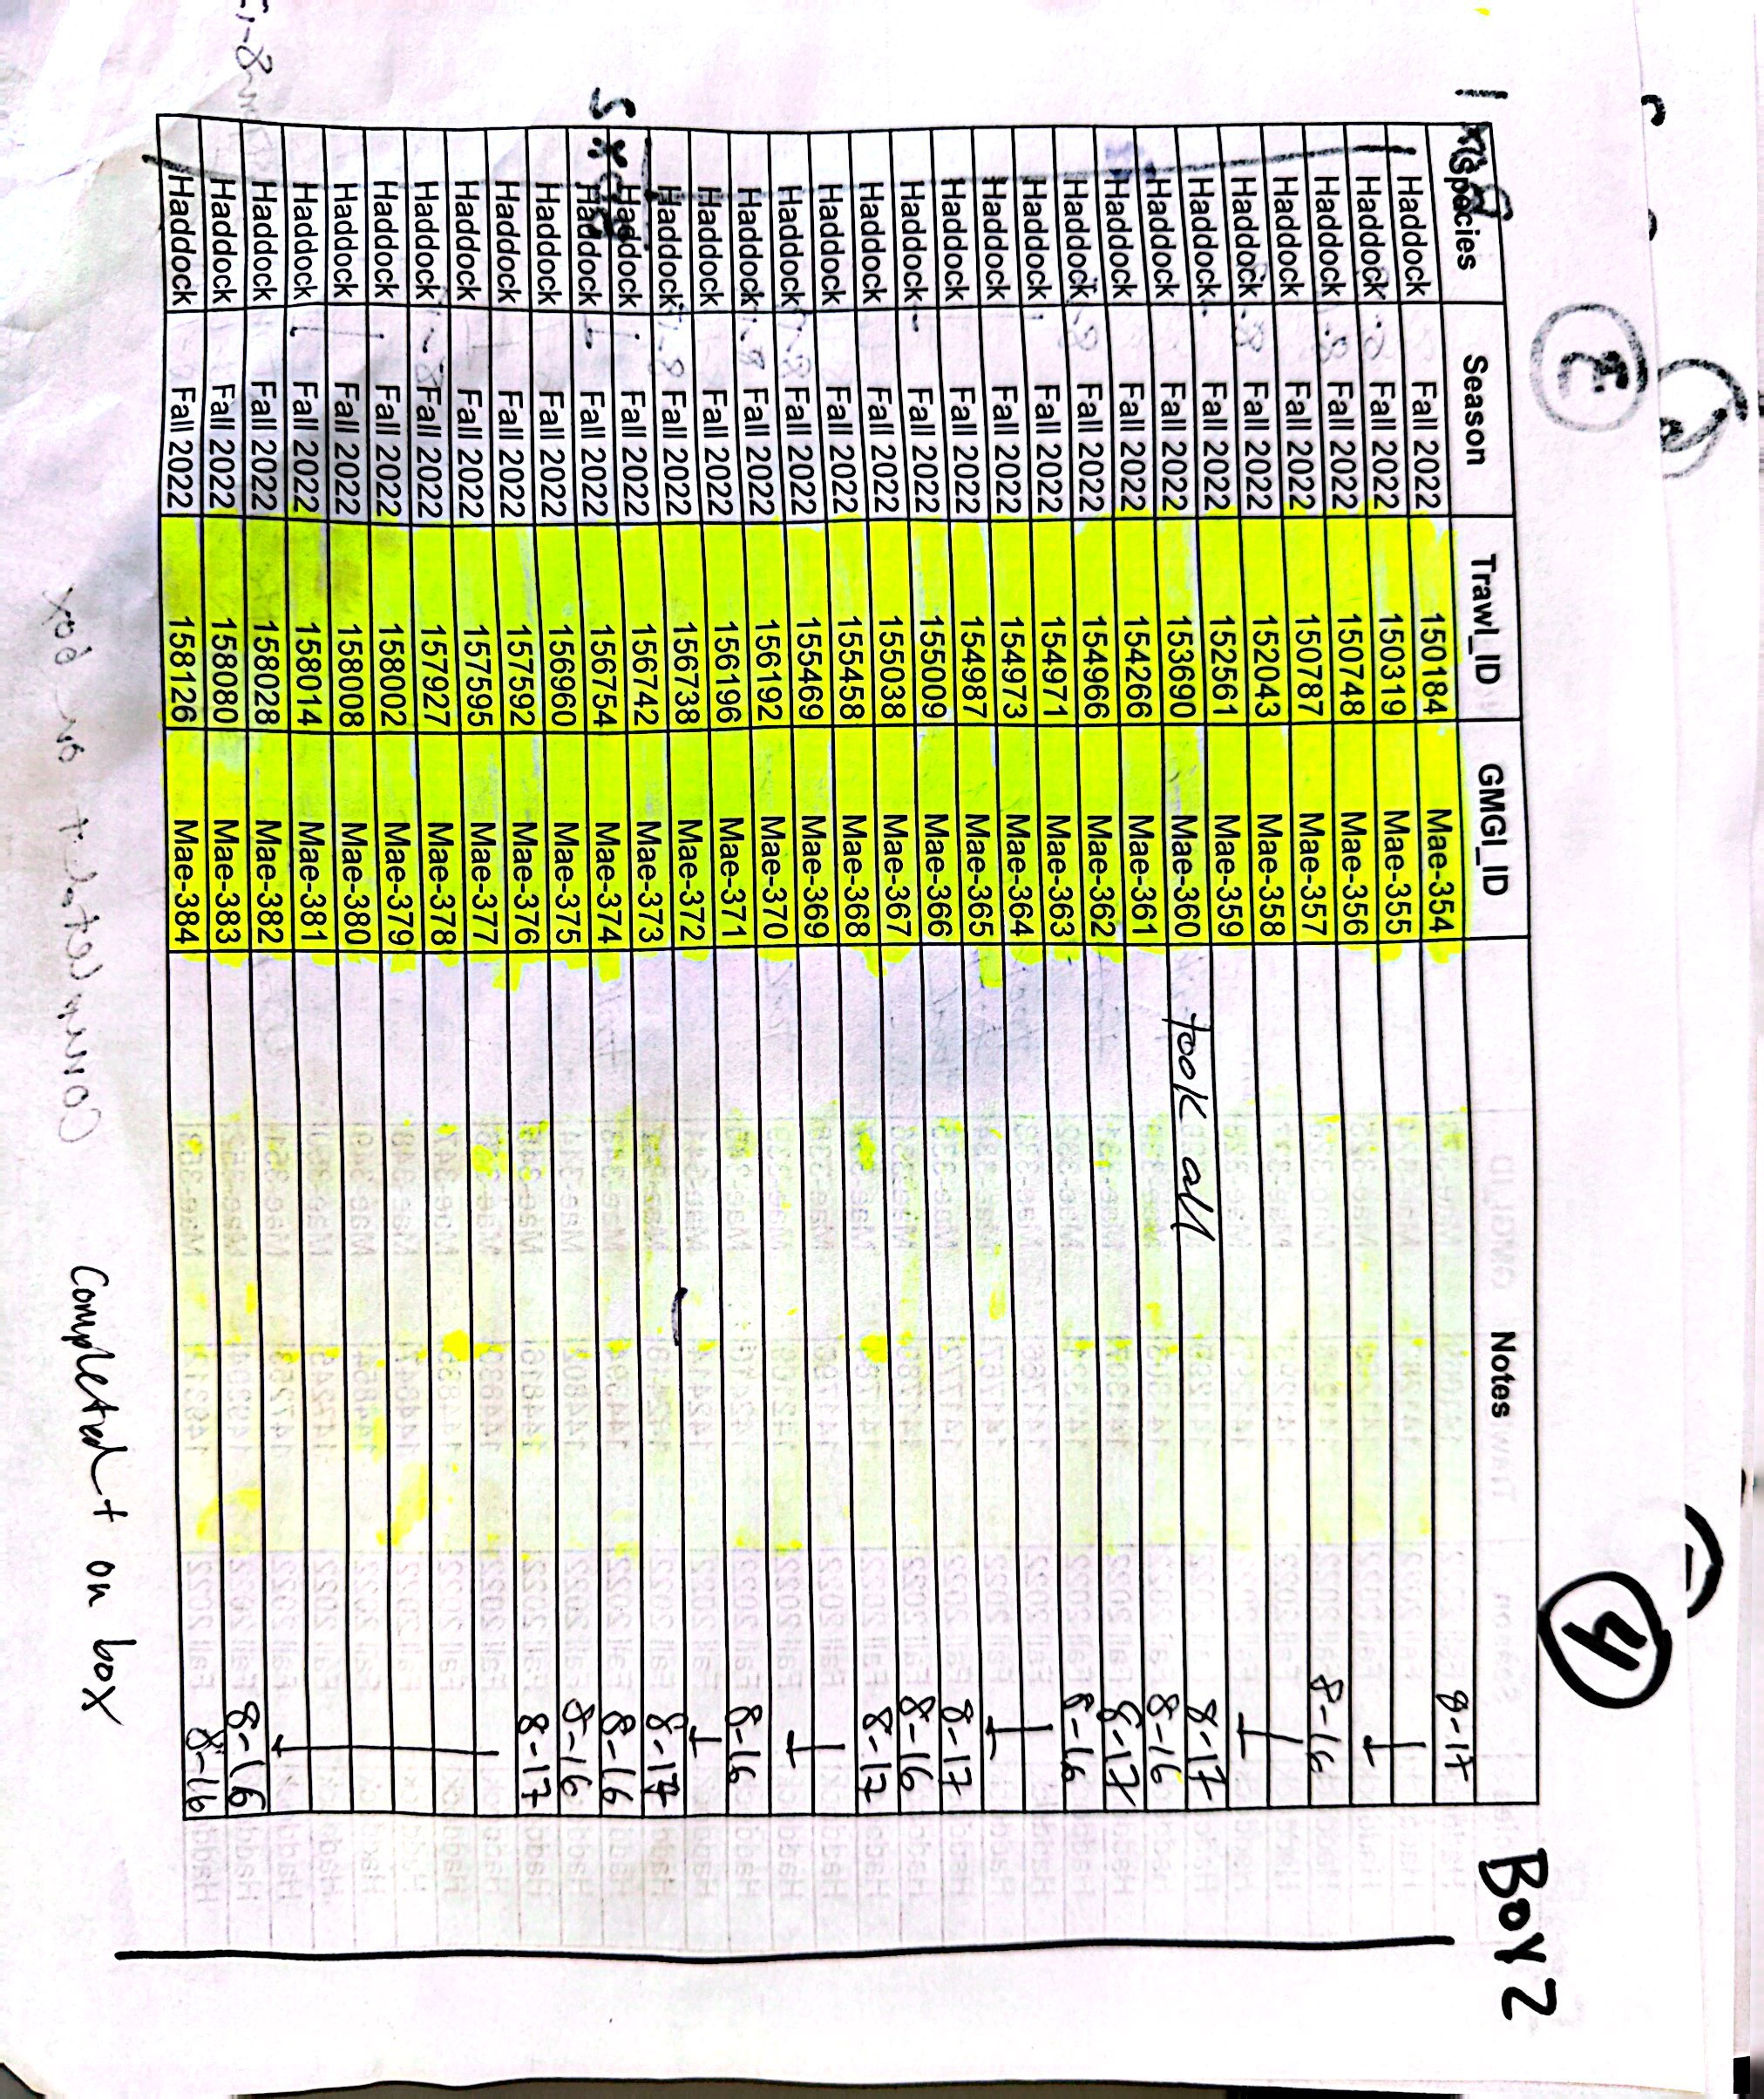 4
Box 2
Species Season Trawl_ID GMGI_ID Notes
Haddock Fall 2022 150184 Mae-354 8-17
Haddock Fall 2022 150319 Mae-355
Haddock Fall 2022 150748 Mae-356
Haddock Fall 2022 150787 Mae-357 8-16
Haddock Fall 2022 152043 Mae-358
Haddock Fall 2022 152561 Mae-359
Haddock Fall 2022 153690 Mae-360 took all 8-17
Haddock Fall 2022 154266 Mae-361 8-16
Haddock Fall 2022 154966 Mae-362 8-17
Haddock Fall 2022 154971 Mae-363 8-16
Haddock Fall 2022 154973 Mae-364
Haddock Fall 2022 154987 Mae-365
Haddock Fall 2022 155009 Mae-366 8-17
Haddock Fall 2022 155038 Mae-367 8-16
Haddock Fall 2022 155458 Mae-368 8-17
Haddock Fall 2022 155469 Mae-369
Haddock Fall 2022 156192 Mae-370
Haddock Fall 2022 156196 Mae-371 8-16
Haddock Fall 2022 156738 Mae-372
Haddock Fall 2022 156742 Mae-373 8-17
Haddock Fall 2022 156754 Mae-374 8-16
Haddock Fall 2022 156960 Mae-375 8-16
Haddock Fall 2022 157592 Mae-376 8-17
Haddock Fall 2022 157595 Mae-377
Haddock Fall 2022 157927 Mae-378
Haddock Fall 2022 158002 Mae-379
Haddock Fall 2022 158008 Mae-380
Haddock Fall 2022 158014 Mae-381
Haddock Fall 2022 158028 Mae-382
Haddock Fall 2022 158080 Mae-383 8-16
Haddock Fall 2022 158126 Mae-384 8-16
Completed + on box